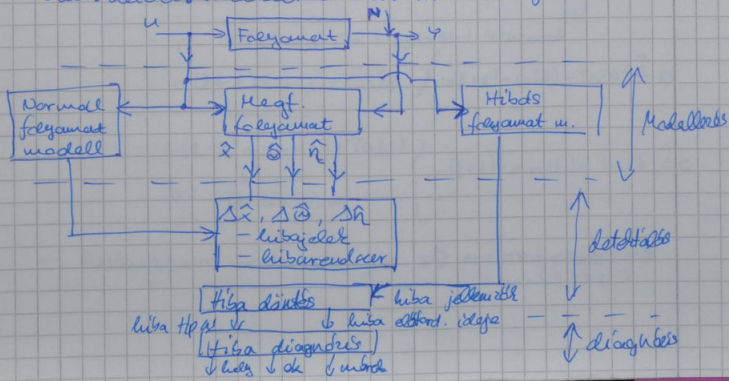 u
N
Folyamat
y
Normál
folyamat
modell
Megf.
folyamat
Hibás
folyamat m.
Modellezés
x̂ Θ̂ η̂
Δx̂, ΔΘ̂, Δη̂
- hibajelek
- hibarendszer
detektálás
Hiba döntés
hiba jellemzők
hiba típus
hiba előford. ideje
Hiba diagnózis
diagnózis
hely ok mérték